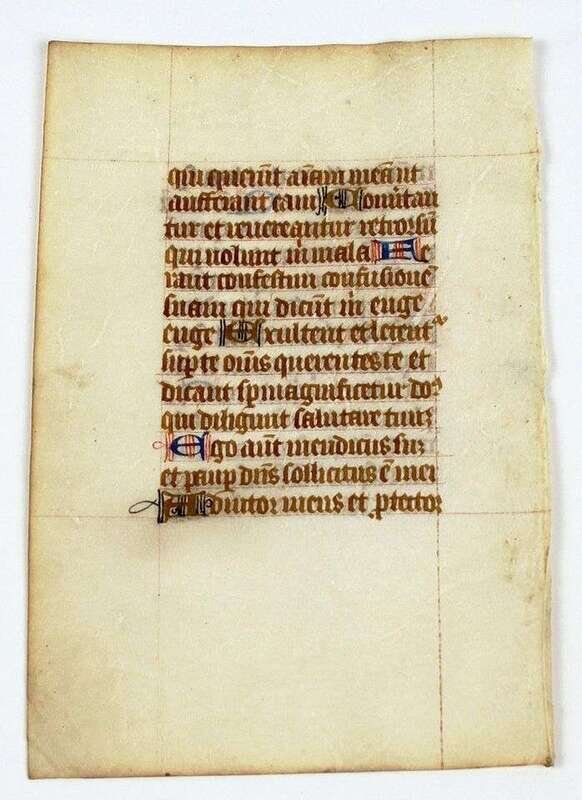 qui querūt aīam meā ut
aufferant eam Conuertan
tur et reuereantur retrorsū
qui uolunt m̄ mala Fe
rant confestim confusionē
suam qui dicūt m̄ euge
euge Exultent et letent᷑
sup te om̄s querentes te et
dicant sp̄ magnificetur do᷑
qui diligunt salutare tuūꝫ
Ego aūt mendicus suꝫ
et paup dn̄s sollicitus ē mei
Adiutor meus et ꝓtector